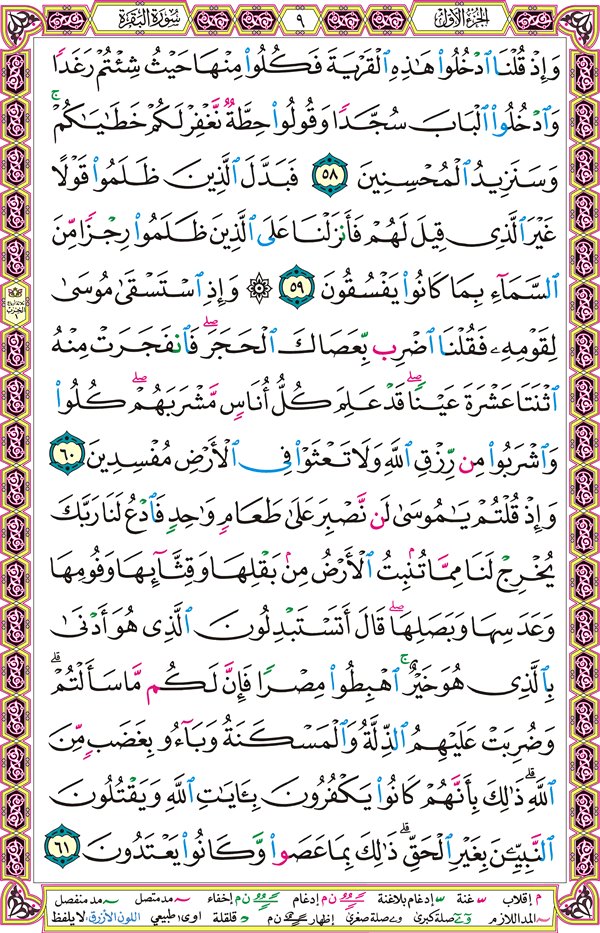 الجزء الأول
٩
سورة البقرة
وَإِذۡ قُلۡنَا ٱدۡخُلُواْ هَٰذِهِ ٱلۡقَرۡيَةَ فَكُلُواْ مِنۡهَا حَيۡثُ شِئۡتُمۡ رَغَدٗا
وَٱدۡخُلُواْ ٱلۡبَابَ سُجَّدٗا وَقُولُواْ حِطَّةٞ نَّغۡفِرۡ لَكُمۡ خَطَٰيَٰكُمۡۚ
وَسَنَزِيدُ ٱلۡمُحۡسِنِينَ ٥٨ فَبَدَّلَ ٱلَّذِينَ ظَلَمُواْ قَوۡلًا
غَيۡرَ ٱلَّذِي قِيلَ لَهُمۡ فَأَنزَلۡنَا عَلَى ٱلَّذِينَ ظَلَمُواْ رِجۡزٗا مِّنَ
ٱلسَّمَآءِ بِمَا كَانُواْ يَفۡسُقُونَ ٥٩ ۞ وَإِذِ ٱسۡتَسۡقَىٰ مُوسَىٰ
لِقَوۡمِهِۦ فَقُلۡنَا ٱضۡرِب بِّعَصَاكَ ٱلۡحَجَرَۖ فَٱنفَجَرَتۡ مِنۡهُ
ٱثۡنَتَا عَشۡرَةَ عَيۡنٗاۖ قَدۡ عَلِمَ كُلُّ أُنَاسٖ مَّشۡرَبَهُمۡۖ كُلُواْ
وَٱشۡرَبُواْ مِن رِّزۡقِ ٱللَّهِ وَلَا تَعۡثَوۡاْ فِي ٱلۡأَرۡضِ مُفۡسِدِينَ ٦٠
وَإِذۡ قُلۡتُمۡ يَٰمُوسَىٰ لَن نَّصۡبِرَ عَلَىٰ طَعَامٖ وَٰحِدٖ فَٱدۡعُ لَنَا رَبَّكَ
يُخۡرِجۡ لَنَا مِمَّا تُنۢبِتُ ٱلۡأَرۡضُ مِنۢ بَقۡلِهَا وَقِثَّآئِهَا وَفُومِهَا
وَعَدَسِهَا وَبَصَلِهَاۖ قَالَ أَتَسۡتَبۡدِلُونَ ٱلَّذِي هُوَ أَدۡنَىٰ
بِٱلَّذِي هُوَ خَيۡرٌۚ ٱهۡبِطُواْ مِصۡرٗا فَإِنَّ لَكُم مَّا سَأَلۡتُمۡۗ
وَضُرِبَتۡ عَلَيۡهِمُ ٱلذِّلَّةُ وَٱلۡمَسۡكَنَةُ وَبَآءُو بِغَضَبٖ مِّنَ
ٱللَّهِۗ ذَٰلِكَ بِأَنَّهُمۡ كَانُواْ يَكۡفُرُونَ بِـَٔايَٰتِ ٱللَّهِ وَيَقۡتُلُونَ
ٱلنَّبِيِّـۧنَ بِغَيۡرِ ٱلۡحَقِّۗ ذَٰلِكَ بِمَا عَصَواْ وَّكَانُواْ يَعۡتَدُونَ ٦١
م إقلاب س غنة س إدغام بلاغنة ن م إدغام ن م إخفاء مد متصل مد منفصل
المد اللازم صلة كبرى صلة صغرى إظهار ن م قلقلة اوى: طبيعي اللون الأزرق: لا يلفظ